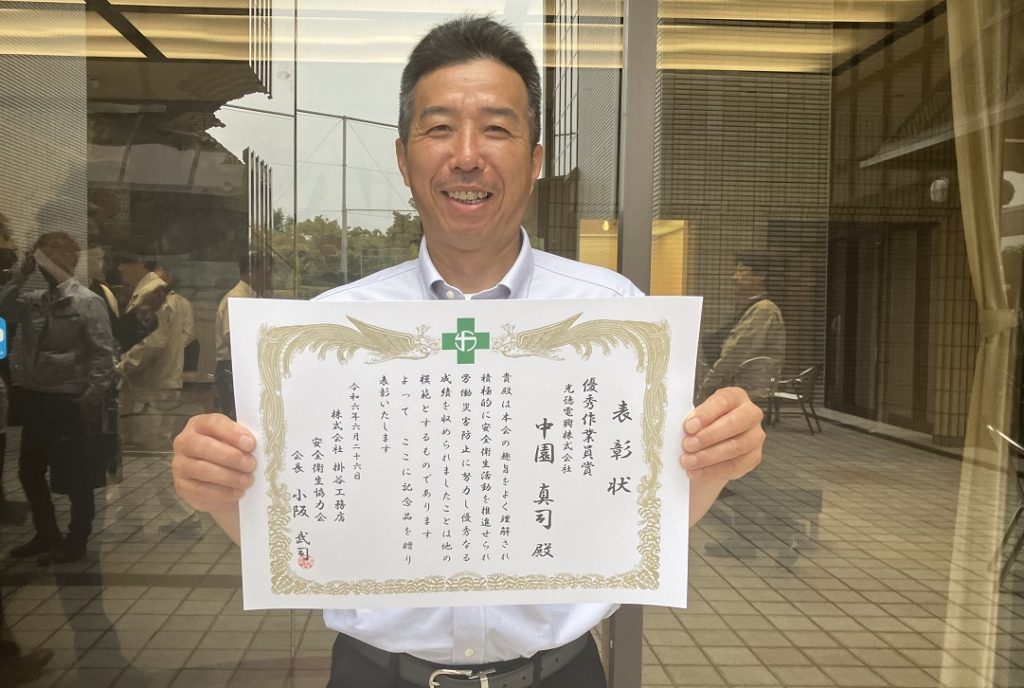 表彰状
優秀作業員賞
光徳電興株式会社
中園 真司 殿
貴殿は本会の趣旨をよく理解され
積極的に安全衛生活動を推進せられ
労働災害防止に努力し優秀なる
成績を収められましたことは他の
模範とするものであります
よって ここに記念品を贈り
表彰いたします
令和六年六月二十六日
株式会社 掛谷工務店
安全衛生協力会
会長 小阪 武司